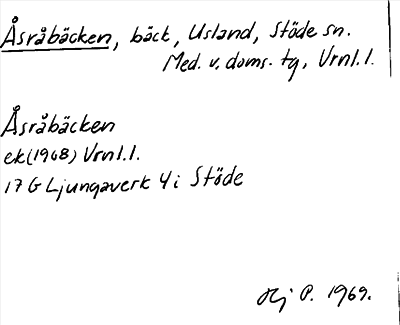 Åsråbäcken, bäck, Usland, Stöde sn.
Med. v. doms. tg, Vrnl.l.
Åsråbäcken
ek(1968) Vrnl.l.
17 G Ljungaverk 4 i Stöde
Hj P. 1969.